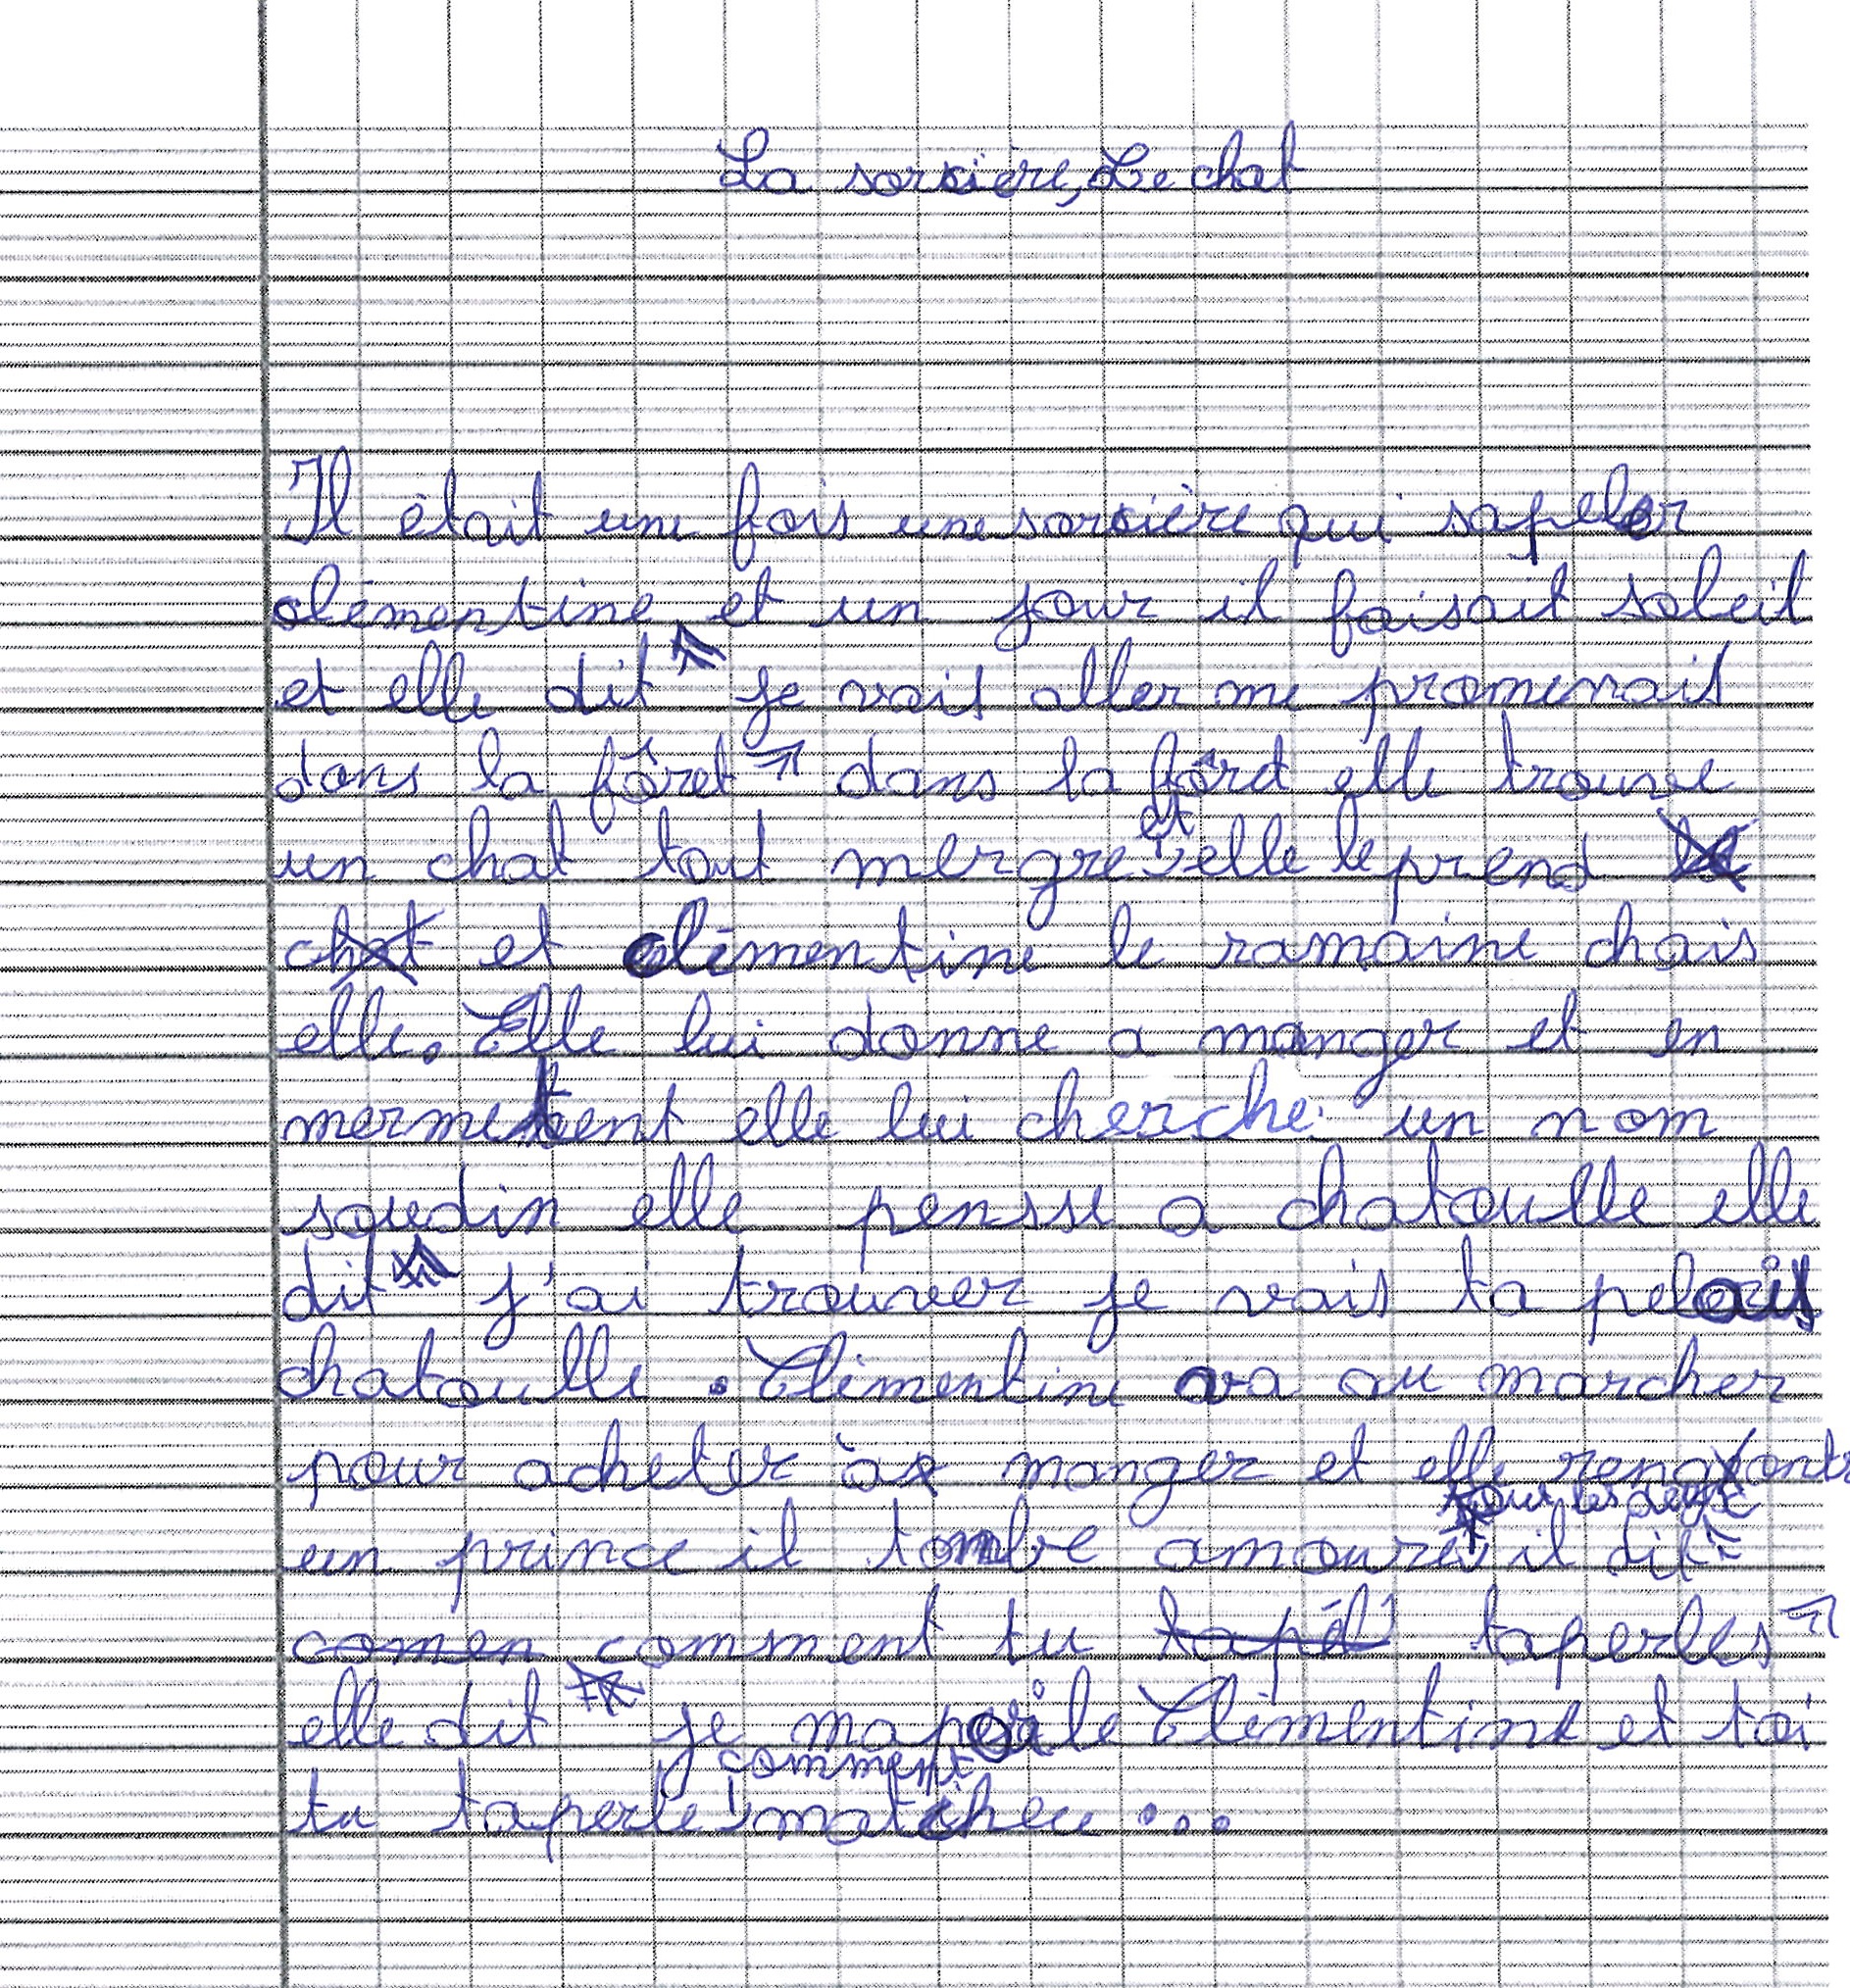 La sorsière, Le chat
Il était une fois une sorsière qui sapeler
clémentine et un jour il faisait soleil
et elle dit " je vais aller me promenais
dans la fôret " dans la fôret elle trouve
un chat tout mergre et elle le prend le
chat et clémentine le ramaine chais
elle. Elle lui donne a manger et en
mermetent elle lui cherche un nom
soudin elle pensse a chatoulle elle
dit " j'ai trouver je vais ta pelais
chatoulle. Clémentine va au marcher
pour acheter à manger et elle rencontre
un prince il tombe amoure tour les deux il dit "
comen comment tu tapél taperles "
elle dit " je mapaile Clémentine et toi
tu taperle comment ! matcheu ...